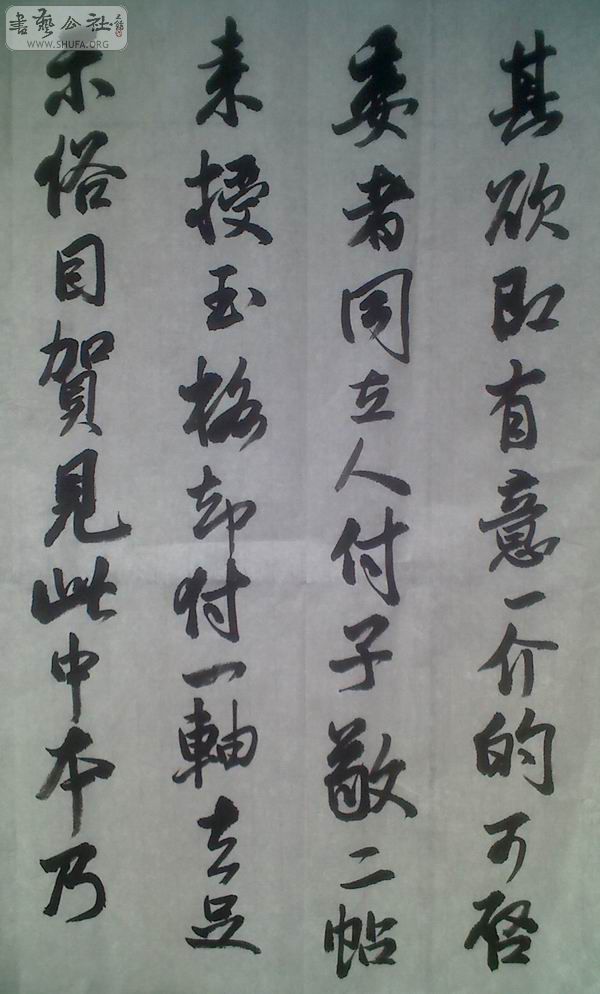 其欲即有意一介的可啓
委者同立人付子敬二帖
来授玉格却付一軸去足
不俗目賀見此中本乃
書藝公社
WWW.SHUFA.ORG